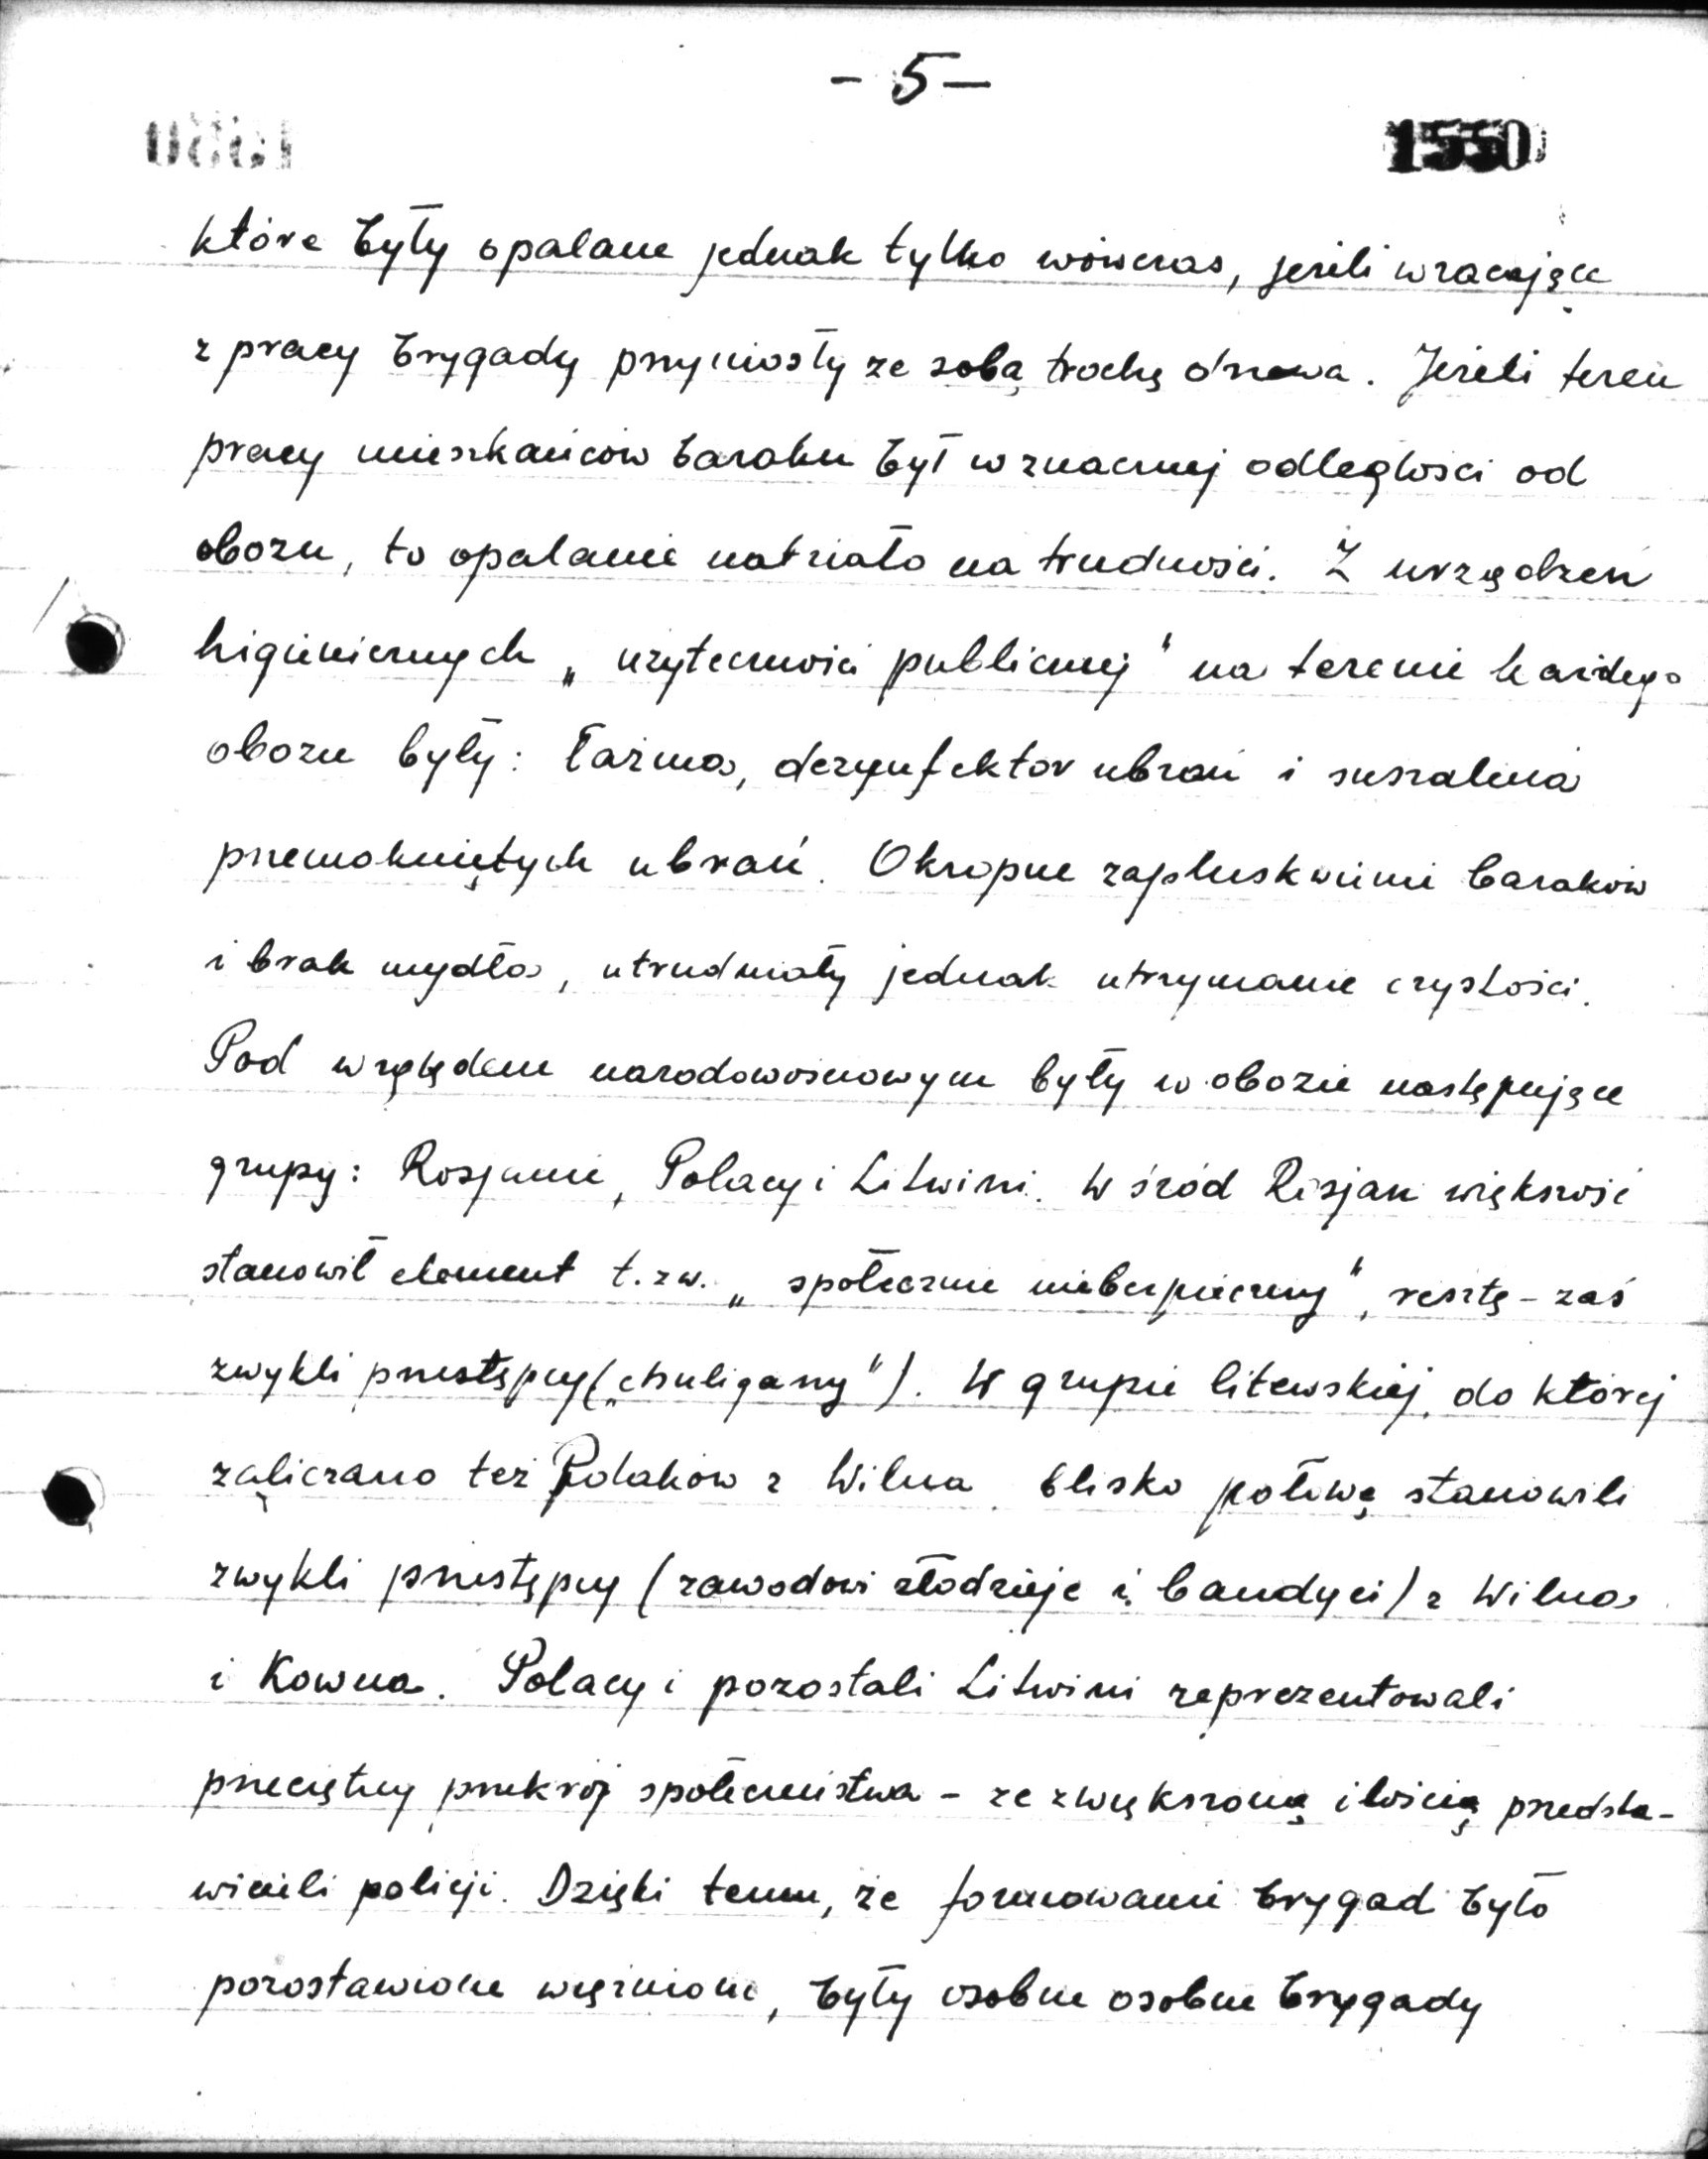 - 5 -
1550
które były opalane jednak tylko wówczas, jeżeli wracające
z pracy brygady przyniosły ze sobą trochę drzewa. Jeżeli teren
pracy mieszkańców baraku był w znacznej odległości od
obozu, to opalanie natrafiało na trudności. Z urządzeń
higienicznych „użyteczności publicznej" na terenie każdego
obozu były: łaźnia, dezynfektor ubrań i suszalnia
przemokniętych ubrań. Okropne zapluskwienie baraków
i brak mydła, utrudniały jednak utrzymanie czystości.
Pod względem narodowościowym były w obozie następujące
grupy: Rosjanie, Polacy i Litwini. Wśród Rosjan większość
stanowił element t.zw. „społecznie niebezpieczny", resztę - zaś
zwykli przestępcy („chuligany"). W grupie litewskiej, do której
zaliczano też Polaków z Wilna blisko połowę stanowili
zwykli przestępcy (zawodowi złodzieje i bandyci) z Wilna
i Kowna. Polacy i pozostali Litwini reprezentowali
przeciętny przekrój społeczeństwa - ze zwiększoną ilością przedsta-
wicieli policji. Dzięki temu, że formowanie brygad było
pozostawione więźniom, były osobne osobne brygady